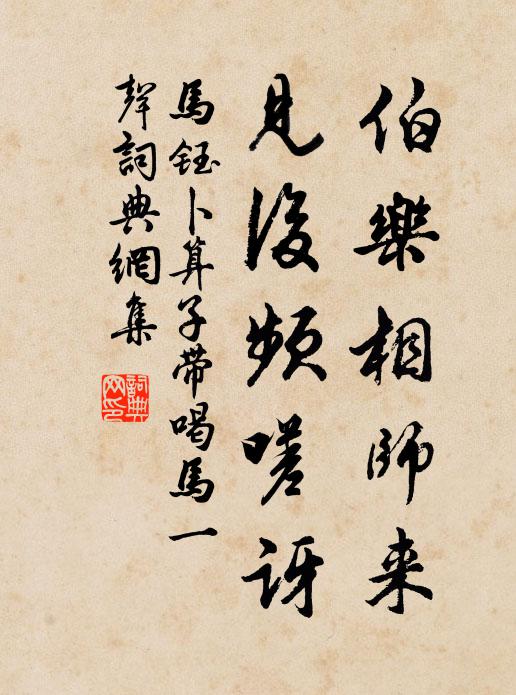 伯樂相師来
見後頻嗟訝
馬鈺卜算子帶喝馬一
聲詞典網集
詞典网印